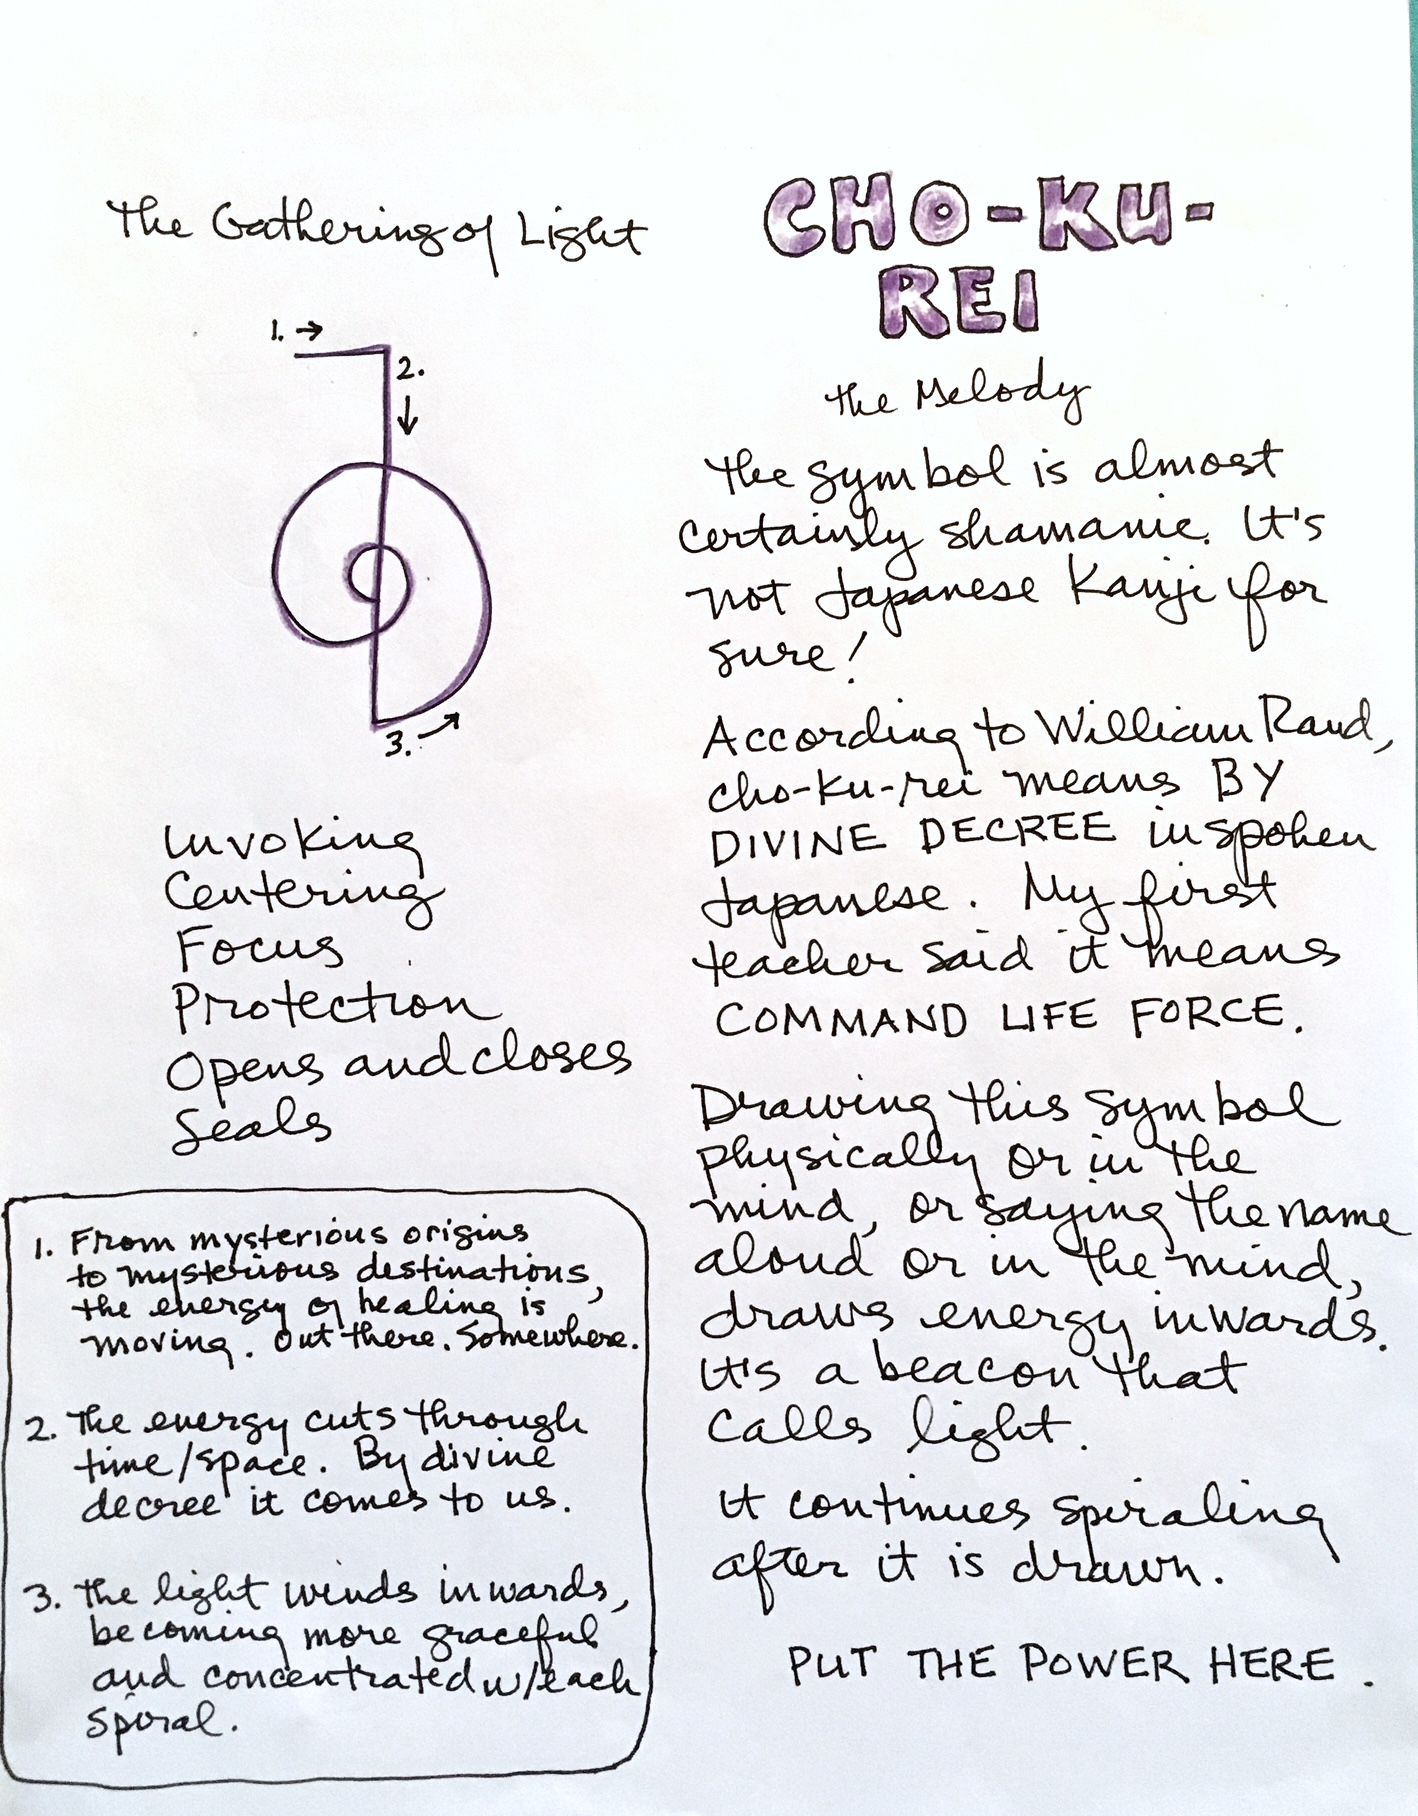 The Gathering of Light
1. →
2.
↓
3. →
Invoking
Centering
Focus
Protection
Opens and closes
Seals
1. From mysterious origins
to mysterious destinations,
the energy of healing is
moving. Out there. Somewhere.
2. The energy cuts through
time/space. By divine
decree it comes to us.
3. The light winds inwards,
becoming more graceful
and concentrated w/each
spiral.
CHO-KU-
REI
The Melody
The symbol is almost
certainly shamanic. It's
not Japanese Kanji for
sure!
According to William Rand,
cho-ku-rei means BY
DIVINE DECREE in spoken
Japanese. My first
teacher said it means
COMMAND LIFE FORCE.
Drawing this symbol
physically or in the
mind, or saying the name
aloud or in the mind,
draws energy inwards.
It's a beacon that
calls light.
It continues spiraling
after it is drawn.
PUT THE POWER HERE.